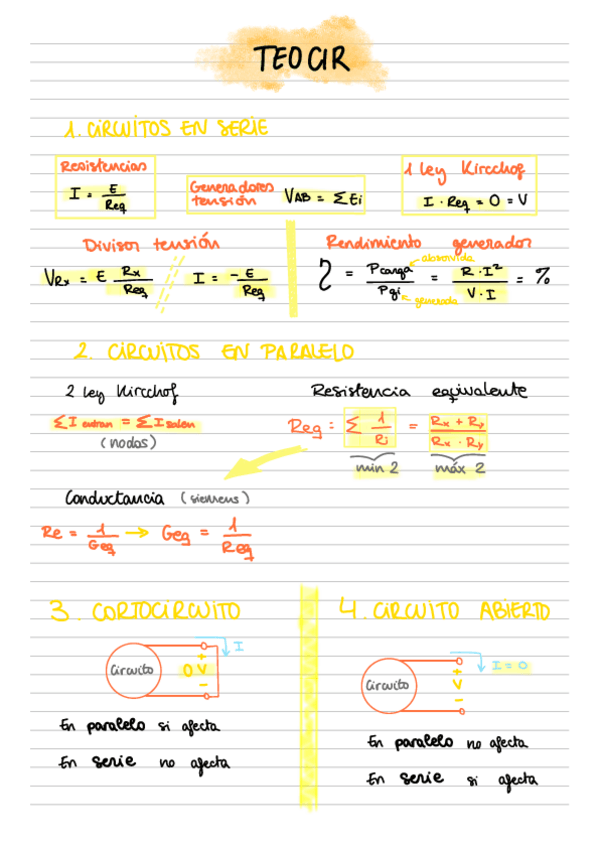 TEOCIR
1. CIRCUITOS EN SERIE
Resistencias
I = E / Req
Generadores tensión VAB = ΣEi
1 ley Kircchof
I · Req = 0 = V
Divisor tensión
VRx = E Rx / Req
I = -E / Req
Rendimiento generador
η = Pcarga / Pgi = R · I² / V · I = %
absorvida
generada
2. CIRCUITOS EN PARALELO
2 ley Kircchof
ΣI entran = ΣI salen
(nodos)
Resistencia eqivalente
Req = Σ 1 / Ri = Rx + Ry / Rx · Ry
min 2 máx 2
Conductancia (siemens)
Re = 1 / Geq → Geq = 1 / Req
3. CORTOCIRCUITO
Circuito
+
0 V
-
I
En paralelo si afecta
En serie no afecta
4. CIRCUITO ABIERTO
Circuito
+
V
-
I = 0
En paralelo no afecta
En serie si afecta